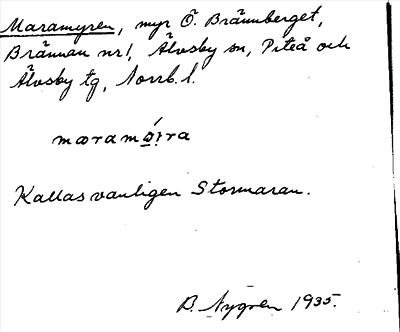 Maramyren, myr Ö. Brännberget,
Brännan nr 1, Älvsby sn, Piteå och
Älvsby tg, Norrb. l.
Kallas vanligen Stormaran.
B. Nygren 1935.